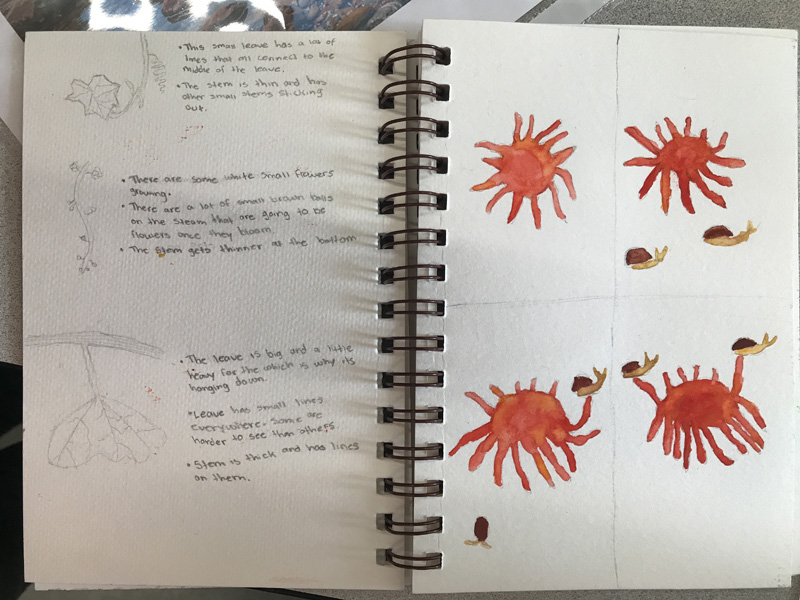 • This small leave has a lot of
lines that all connect to the
middle of the leave.
• The stem is thin and has
other small stems sticking
out.
• There are some white small flowers
growing.
• There are a lot of small brown balls
on the steam that are going to be
flowers once they bloom.
• The stem gets thinner at the bottom
• The leave is big and a little
heavy for the which is why its
hanging down.
• Leave has small lines
everywhere. Some are
harder to see than others.
• Stem is thick and has lines
on them.